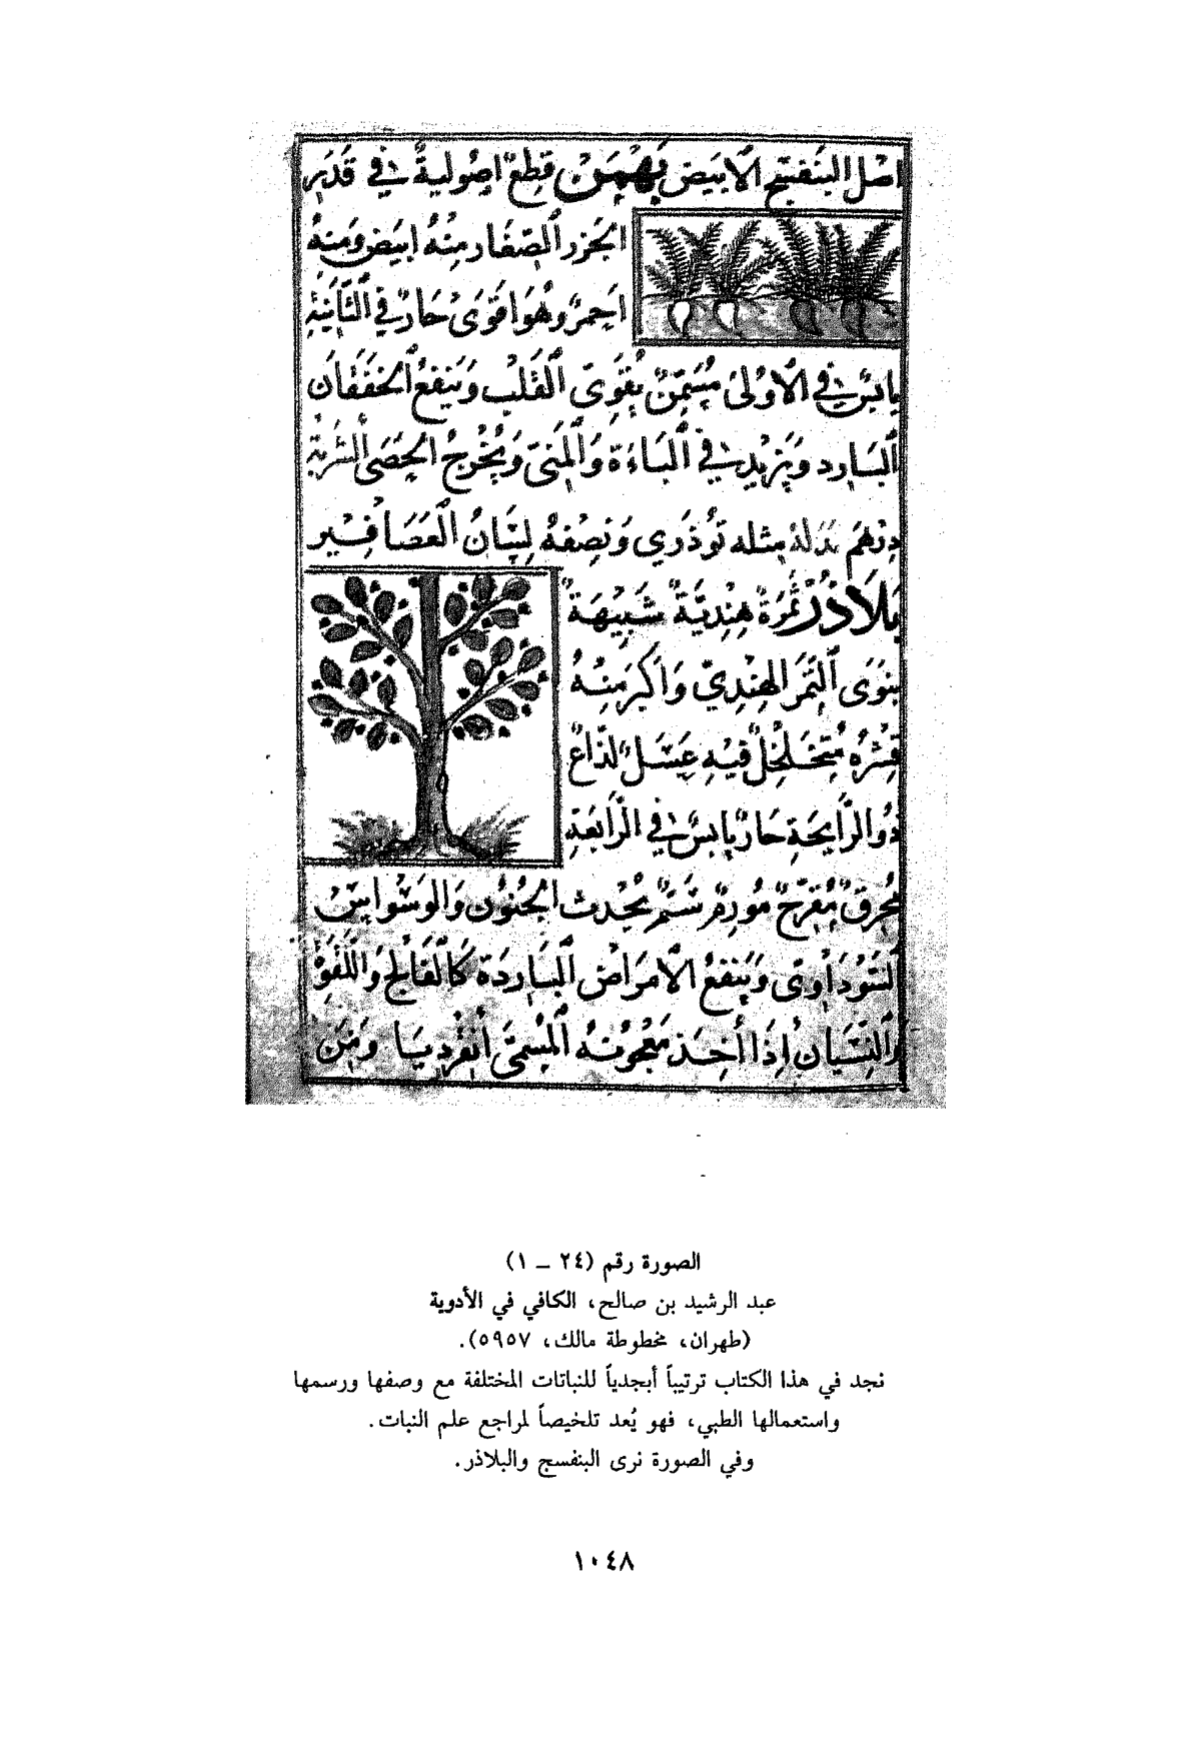 اصْل البَنفسَج الاَبيَض بَهْمَنْ قِطَعٌ اصُوليةٌ في قَدَرِ
الجَزَر الصّغَار مِنْهُ ابيَض وَمنهُ
احمَرٌ وهُوَ اقوَى حَارٌّ في الثَّانَيَةِ
يابسٌ في الأولى مُسَمِّنٌ يُقَوِى القَلْبَ وَيَنفعُ الخَفَقَان
البَارِد وَيَزيدِ في البَاءَة وَالمَنى وَيُخْرِجُ الحَصَى الشَربَة
دِرهَم بَدَلهُ مِثله تَوُذَرى وَنِصْفهُ لِسَانُ العَصَافِيْر
بَلاَذُرْ ثَمَرَةٌ هِندِيَّةٌ شَبِيْهَةٌ
بنَوَى التَّمر الهِندِيّ وَاَكبر مِنْهُ
قِشْرُه مُتَخَلخِلٌ فيْهِ عَسَلٌ لَذّاعٌ
ذُو الرَّايحَةِ حَارٌّ يَابسٌ في الرّابعَةِ
مُحرِقٌ مُقَرِّحٌ مُورِمٌ سَمٌّ يُحْدث الجُنُون وَالوَسْوَاسَ
السَّودَاوِى وَيَنفَعُ الاَمرَاض البَاردَة كَالفَالج وَاللَّقوَة
وَالنِّسْيَان إِذَا أُخِذ مَعْجُونهُ المُسَمَّى أنقرديَا وَمِن
الصورة رقم (٢٤ ــ ١)
عبد الرشيد بن صالح، الكافي في الأدوية
(طهران، مخطوطة مالك، ٥٩٥٧).
نجد في هذا الكتاب ترتيباً أبجدياً للنباتات المختلفة مع وصفها ورسمها
واستعمالها الطبي، فهو يُعد تلخيصاً لمراجع علم النبات.
وفي الصورة نرى البنفسج والبلاذر.
١٠٤٨